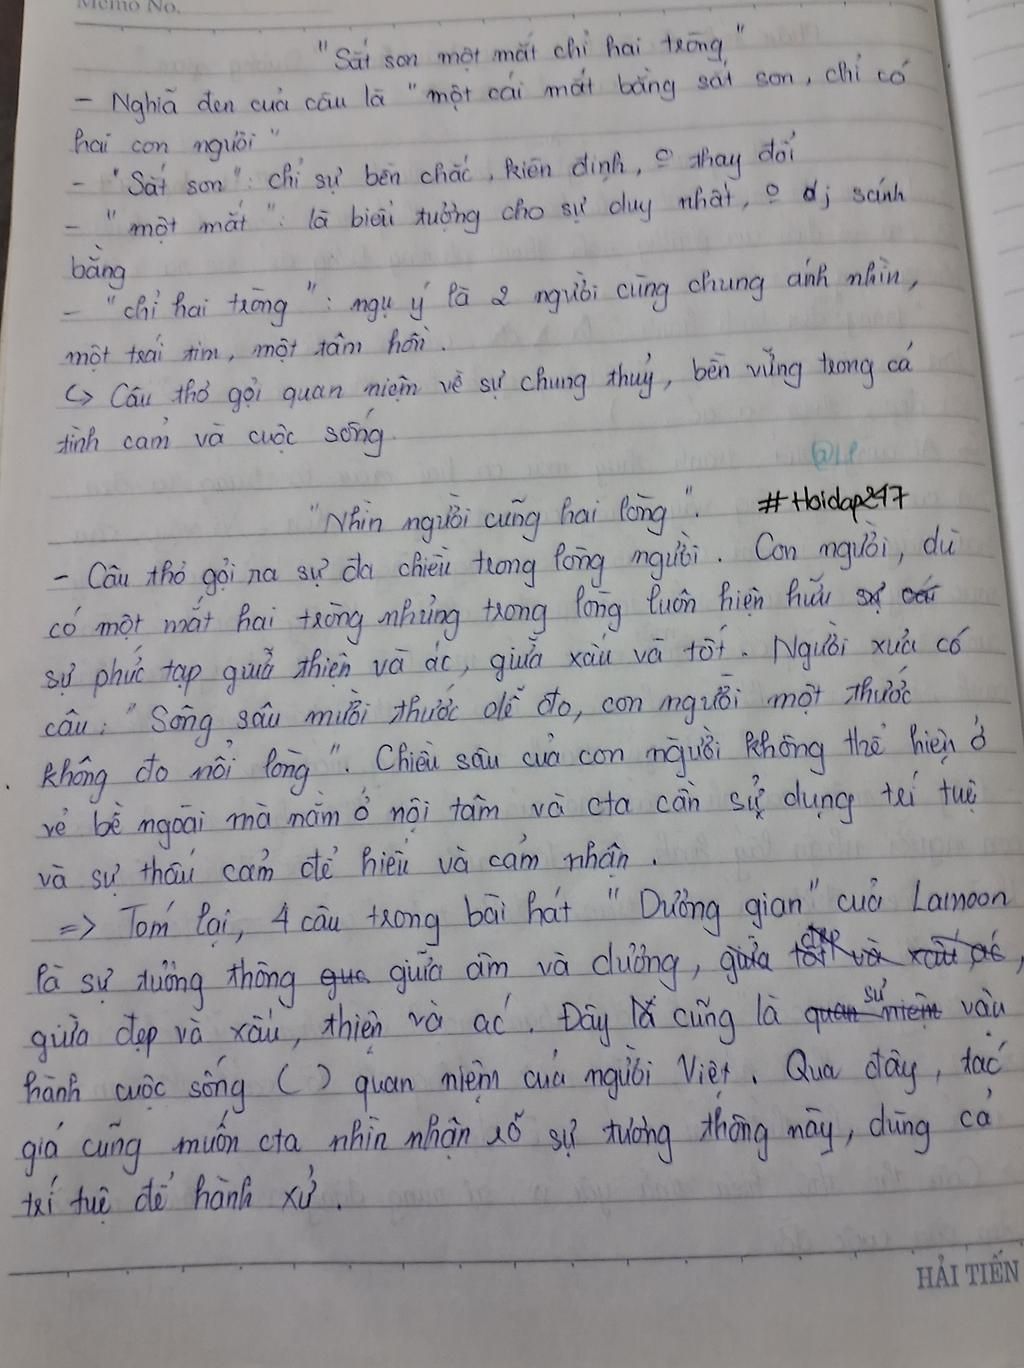 Memo No.
"Sắt son một mắt chỉ hai tròng"
- Nghĩa đen của câu là "một cái mắt bằng sắt son, chỉ có
hai con người"
- "Sắt son": chỉ sự bền chắc, kiên định, o thay đổi
- "một mắt": là biểu tượng cho sự duy nhất, o dj sánh
bằng
- "chỉ hai tròng": ngụ ý là 2 người cùng chung ánh nhìn,
một trái tim, một tâm hồn.
↳ Câu thơ gợi quan niệm về sự chung thuỷ, bền vững trong cả
tình cảm và cuộc sống.
"Nhìn người cũng hai lòng".
#Hoidap247
- Câu thơ gợi ra sự đa chiều trong lòng người. Con người, dù
có một mắt hai tròng nhưng trong lòng luôn hiện hữu
sự phức tạp giữa thiện và ác, giữa xấu và tốt. Người xưa có
câu: "Sông sâu mười thước dễ đo, con người một thước
không đo nổi lòng". Chiều sâu của con người không thể hiện ở
vẻ bề ngoài mà nằm ở nội tâm và cta cần sử dụng trí tuệ
và sự thấu cảm để hiểu và cảm nhận.
=> Tóm lại, 4 câu trong bài hát "Dương gian" của Lamoon
là sự tương thông giữa âm và dương,
giữa đẹp và xấu, thiện và ác. Đây cũng là sự vận
hành cuộc sống ( ) quan niệm của người Việt. Qua đây, tác
giả cũng muốn cta nhìn nhận rõ sự tương thông này, dùng cả
trí tuệ để hành xử.
HẢI TIẾN